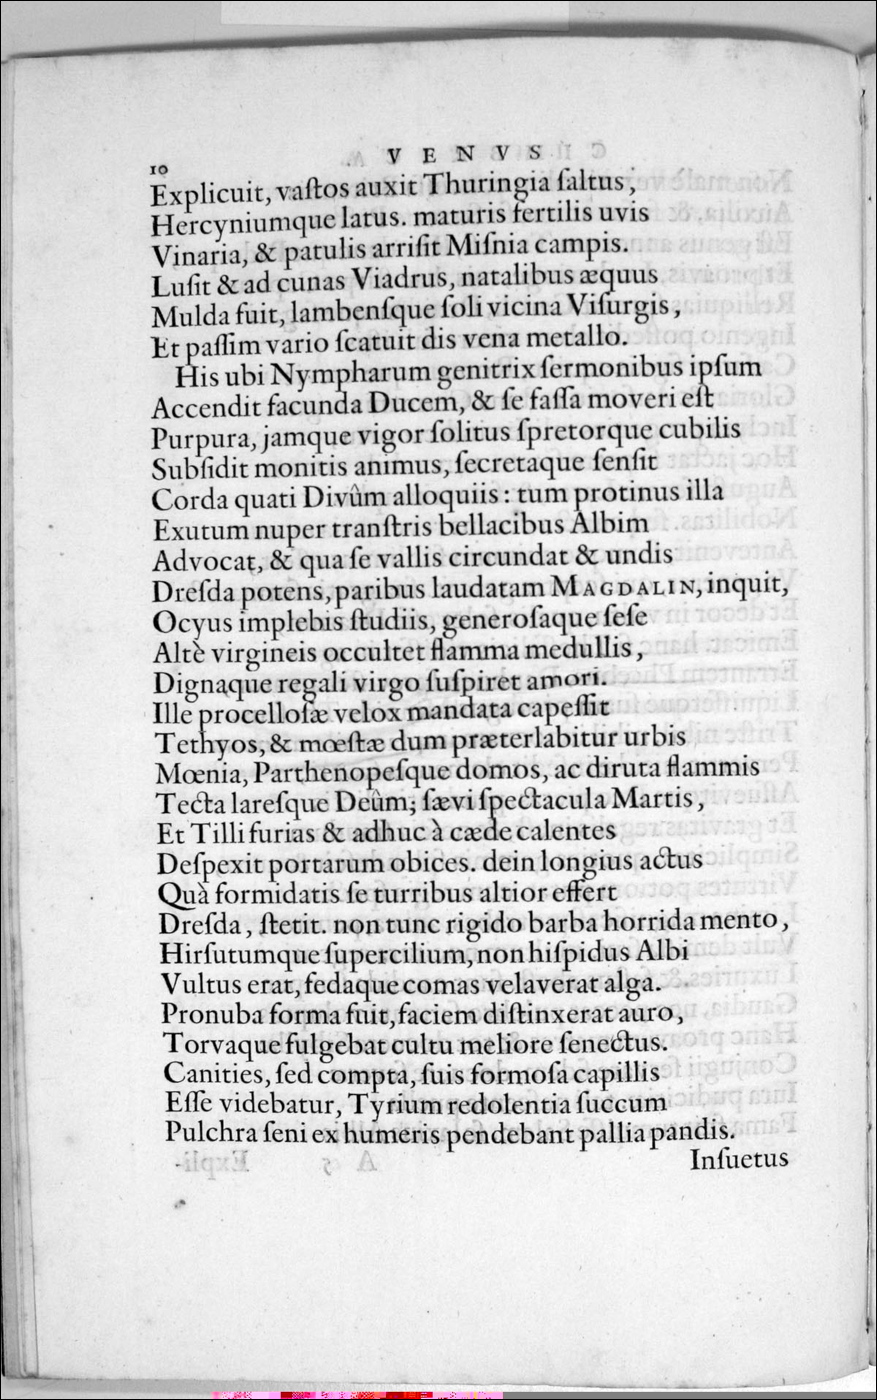 10
V E N V S
Explicuit, vaſtos auxit Thuringia ſaltus,
Hercyniumque latus. maturis fertilis uvis
Vinaria, & patulis arriſit Miſnia campis.
Luſit & ad cunas Viadrus, natalibus æquus
Mulda fuit, lambenſque ſoli vicina Viſurgis,
Et paſſim vario ſcatuit dis vena metallo.
His ubi Nympharum genitrix ſermonibus ipſum
Accendit facunda Ducem, & ſe faſſa moveri eſt
Purpura, jamque vigor ſolitus ſpretorque cubilis
Subſidit monitis animus, ſecretaque ſenſit
Corda quati Divûm alloquiis: tum protinus illa
Exutum nuper tranſtris bellacibus Albim
Advocat, & qua ſe vallis circundat & undis
Dreſda potens, paribus laudatam MAGDALIN, inquit,
Ocyus implebis ſtudiis, generoſaque ſeſe
Altè virgineis occultet flamma medullis,
Dignaque regali virgo ſuſpiret amori.
Ille procelloſæ velox mandata capeſſit
Tethyos, & mœſtæ dum præterlabitur urbis
Mœnia, Parthenopeſque domos, ac diruta flammis
Tecta lareſque Deûm; ſævi ſpectacula Martis,
Et Tilli furias & adhuc à cæde calentes
Deſpexit portarum obices. dein longius actus
Quà formidatis ſe turribus altior effert
Dreſda, ſtetit. non tunc rigido barba horrida mento,
Hirſutumque ſupercilium, non hiſpidus Albi
Vultus erat, fedaque comas velaverat alga.
Pronuba forma fuit, faciem diſtinxerat auro,
Torvaque fulgebat cultu meliore ſenectus.
Canities, ſed compta, ſuis formoſa capillis
Eſſe videbatur, Tyrium redolentia ſuccum
Pulchra ſeni ex humeris pendebant pallia pandis.
Inſuetus